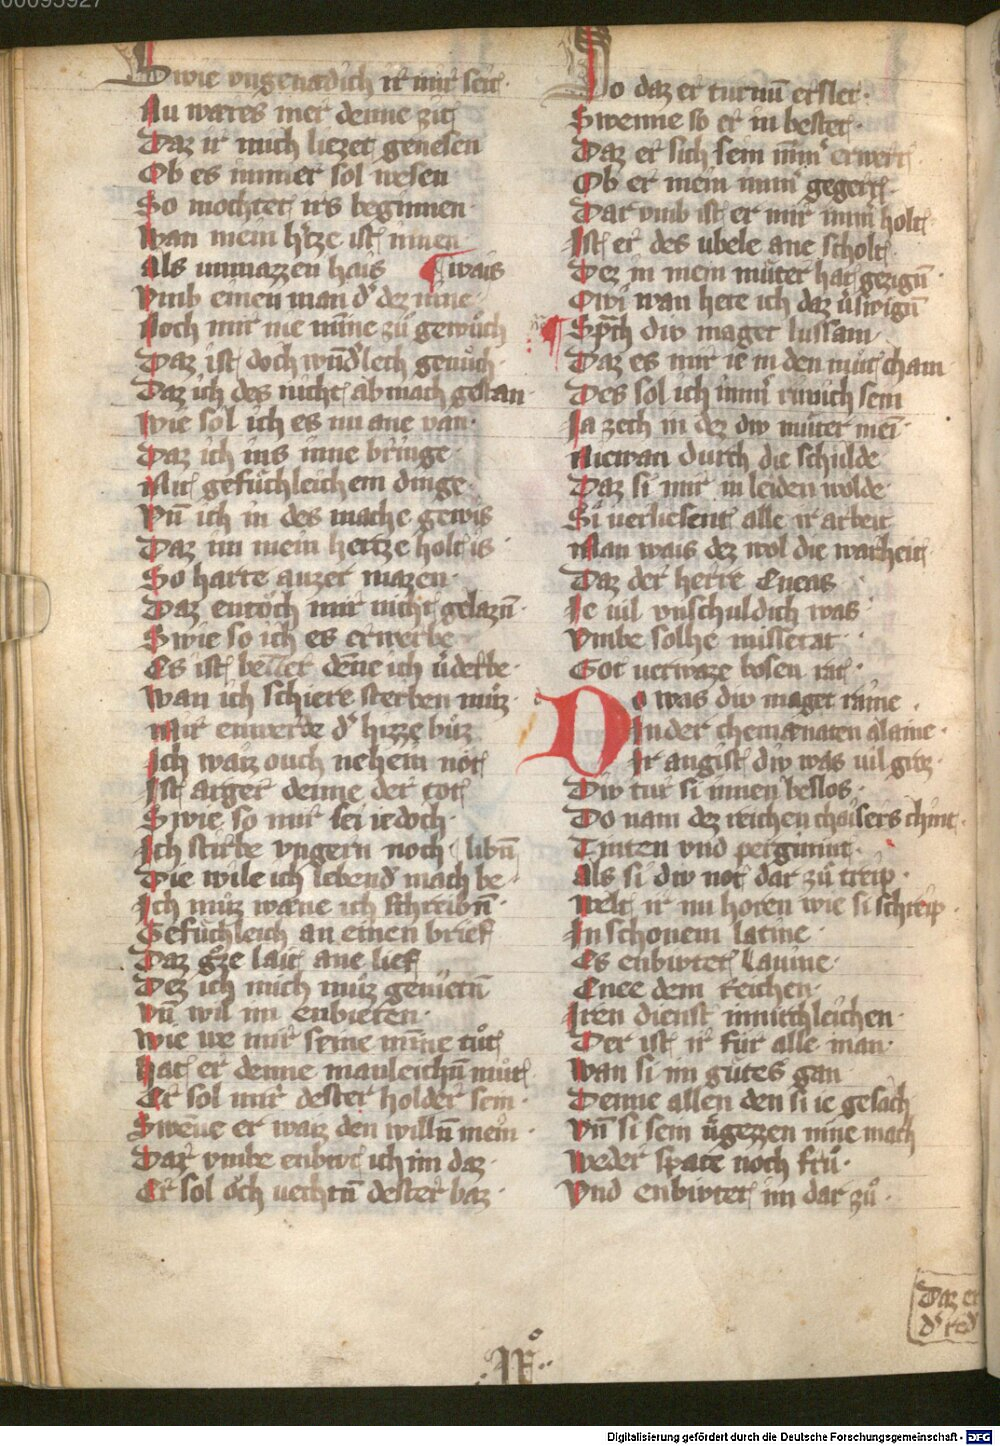 00095927
Swie vngenadich ir mir seit·
Nu wares mer denne zit
Daz ir mich liezet genesen
Ob es immer sol wesen
So mochtet irs beginnen·
Wan mein h̾tze ist innen
Als unmazzen hais ¶ wais
Vmb einen man d̾ dez nine·
Noch mir nie mīne zů gewůch
Daz ist doch wūd̾lech genůch·
Daz ich des nicht ab mach gestan·
Wie sol ich es nu ane van·
Daz ich ins inne bringe·
Mit gefůchleichem dinge·
Vn̄ ich in des mache gewis
Daz im mein hertze holt is·
So harte auzer mazen·
Daz enwͦch mir nicht gelazn̄·
Swie so ich es erwerbe
Es ist besser dēne ich v̾derbe·
Wan ich schiere sterben můz·
Mir enwerde d̾ hizze bůz
Ich waiz ouch nehein not
Ist arger denne der tot
Swie so mir sei iedoch·
Ich stirbe vngern noch ¶ libn̄
Die wile ich lebend̾ mach be·
Ich můz wæne ich schreibn̄·
Gefůchleich an einen brief
Daz gͦze lait ane lief
Dez ich mich můz genietn̄
Vn̄ wil im enbieten·
Wie we mir seine mīne tůt
Hat er denne manleichn̄ můt
Er sol mir dester holder sein·
Swēne er waiz den willn̄ mein·
Dar vmbe enbivt ich im daz·
Er sol och vechtn̄ dester baz·
Do daz er turnū ersler·
Swenne so er in bestet·
Daz er sich sein im̄m̾ erwert
Ob er mein nim̾ gegert·
Dar vmb ist er mir nim̄ holt·
Ist er des ubele ane scholt
Dez in mein můter hat gezign̄·
Owi wan hete ich daz v̾swign̄
Sp̾ch div maget lussam·
Daz es mir ie in den můt cham·
Des sol ich im̄m̾ riwich sein
Ja zech in dez div můter mei̅·
Niewan durch die schulde
Daz si mir in leiden wolde·
Si verliesent alle ir arbeit
Man wais dez wol die warheit
Daz der herre Eneas
Ie vil vnschuldich was·
Vmbe solhe missetat·
Got verwaze bosen rat·
Do was div maget raine·
In der chemænaten alaine·
Ir angist div was vil groz·
Div tur si innen beslos·
Do nam dez reichen chaisers chint·
Tinten vnd pergimint·
Als si div not dar zů treip·
Welt ir nu horen wie si schreip·
In schonem latine·
Es enbivtet Lauine·
Enee dem reichen·
Iren dienst innichleichen·
Der ist ir fur alle man·
Wan si im gůtes gan
Denne allen den si ie gesach
Vn̄ si sein v̾gezzen nine mach
Weder spate noch frů·
Vnd enbivtet im dar zů·
Daz er
Digitalisierung gefördert durch die Deutsche Forschungsgemeinschaft - DFG